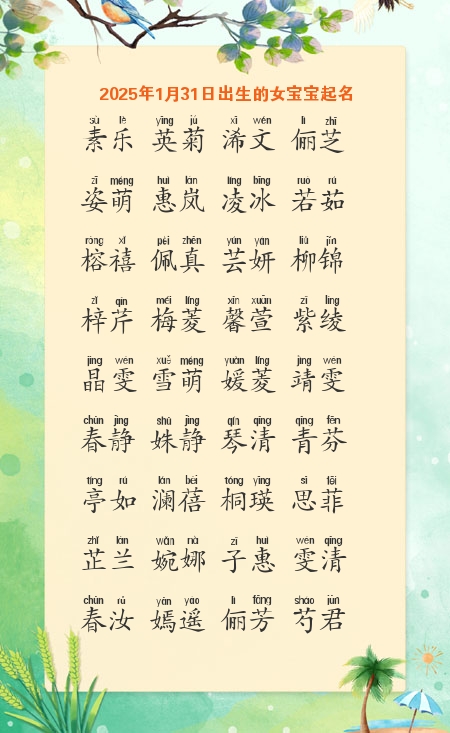 2025年1月31日出生的女宝宝起名
sù lè yīng jú xī wén lì zhī
素乐 英菊 浠文 俪芝
zī méng huì lán líng bīng ruò rú
姿萌 惠岚 凌冰 若茹
róng xǐ pèi zhēn yún yán liǔ jǐn
榕禧 佩真 芸妍 柳锦
zǐ qín méi líng xīn xuān zǐ líng
梓芹 梅菱 馨萱 紫绫
jīng wén xuě méng yuán líng jìng wén
晶雯 雪萌 媛菱 靖雯
chūn jìng shū jìng qín qīng qīng fēn
春静 姝静 琴清 青芬
tíng rú lán bèi tóng yīng sī fēi
亭如 澜蓓 桐瑛 思菲
zhǐ lán wǎn nà zǐ huì wén qīng
芷兰 婉娜 子惠 雯清
chūn rǔ yān yáo lì fāng sháo jūn
春汝 嫣遥 俪芳 芍君